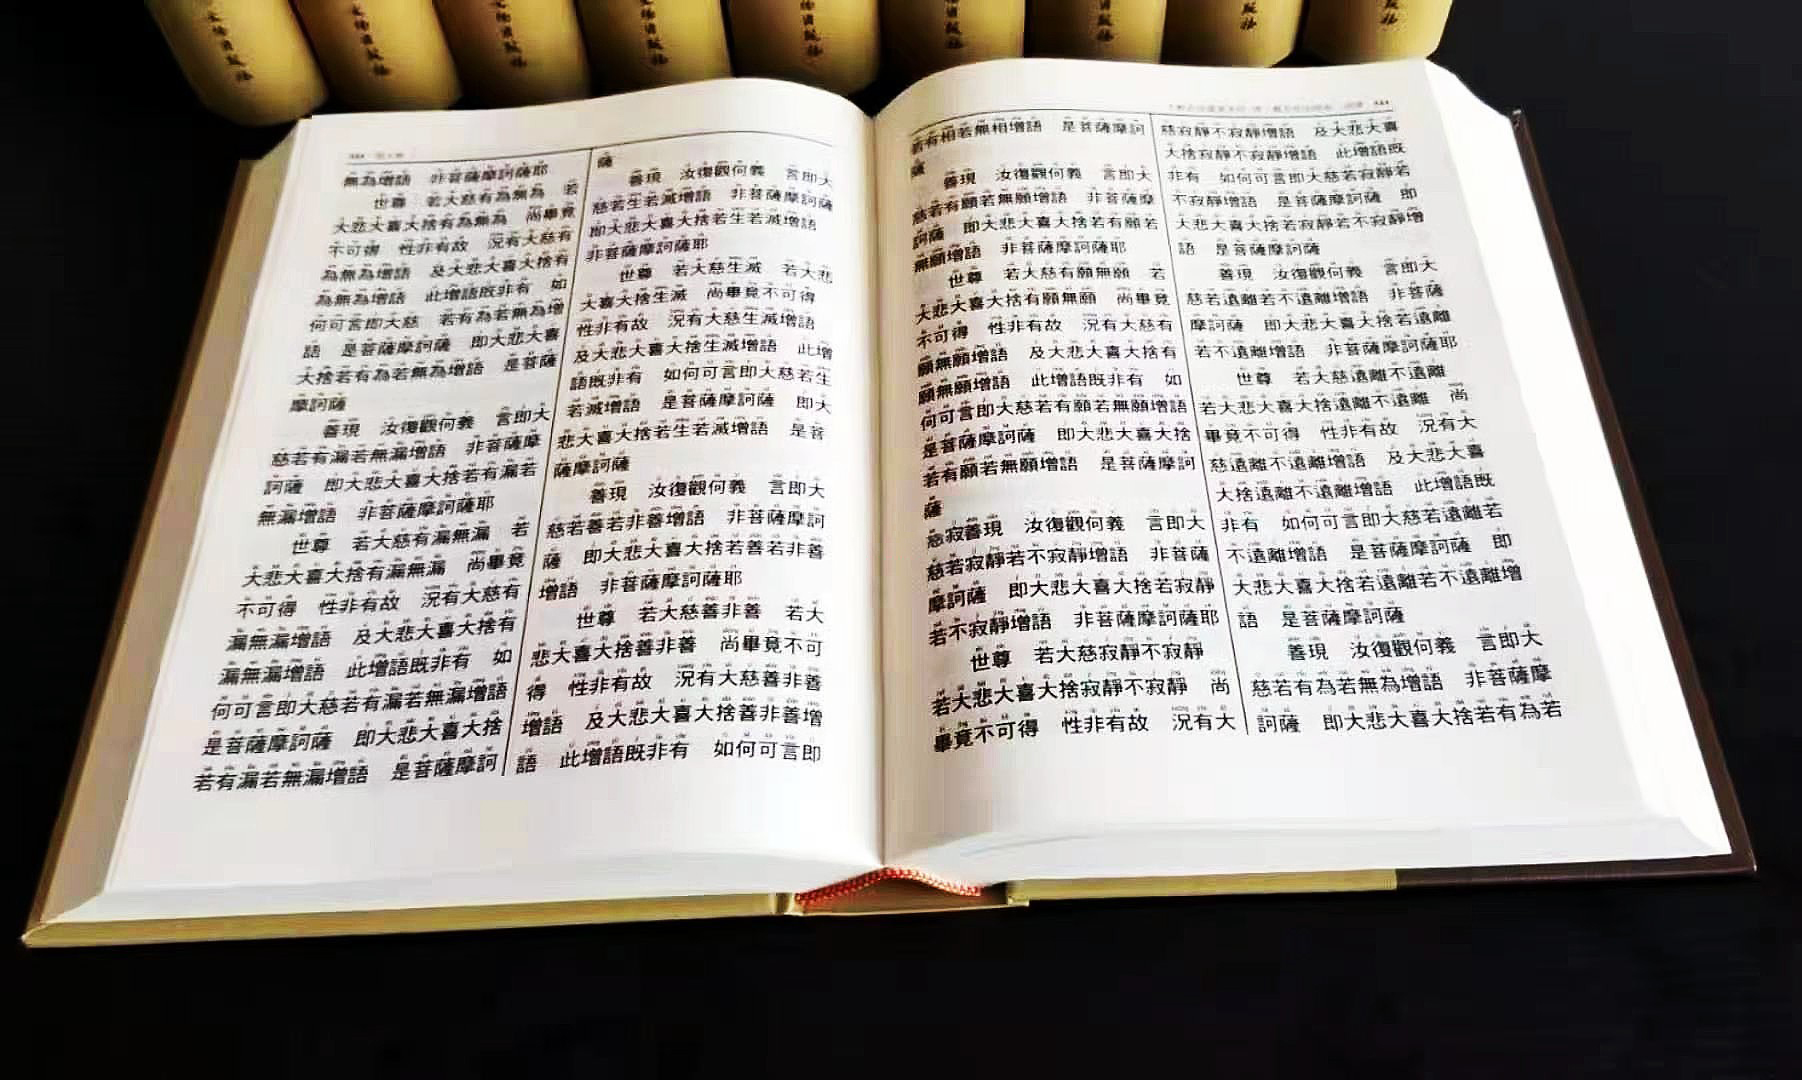 無為增語　非菩薩摩訶薩耶
世尊　若大慈有為無為　若
大悲大喜大捨有為無為　尚畢竟
不可得　性非有故　況有大慈有
為無為增語　及大悲大喜大捨有
為無為增語　此增語既非有　如
何可言即大慈　若有為若無為增
語　是菩薩摩訶薩　即大悲大喜
大捨若有為若無為增語　是菩薩
摩訶薩
善現　汝復觀何義　言即大
慈若有漏若無漏增語　非菩薩摩
訶薩　即大悲大喜大捨若有漏若
無漏增語　非菩薩摩訶薩耶
世尊　若大慈有漏無漏　若
大悲大喜大捨有漏無漏　尚畢竟
不可得　性非有故　況有大慈有
漏無漏增語　及大悲大喜大捨有
漏無漏增語　此增語既非有　如
何可言即大慈若有漏若無漏增語
是菩薩摩訶薩　即大悲大喜大捨
若有漏若無漏增語　是菩薩摩訶
薩
善現　汝復觀何義　言即大
慈若生若滅增語　非菩薩摩訶薩
即大悲大喜大捨若生若滅增語
非菩薩摩訶薩耶
世尊　若大慈生滅　若大悲
大喜大捨生滅　尚畢竟不可得
性非有故　況有大慈生滅增語
及大悲大喜大捨生滅增語　此增
語既非有　如何可言即大慈若生
若滅增語　是菩薩摩訶薩　即大
悲大喜大捨若生若滅增語　是菩
薩摩訶薩
善現　汝復觀何義　言即大
慈若善若非善增語　非菩薩摩訶
薩　即大悲大喜大捨若善若非善
增語　非菩薩摩訶薩耶
世尊　若大慈善非善　若大
悲大喜大捨善非善　尚畢竟不可
得　性非有故　況有大慈善非善
增語　及大悲大喜大捨善非善增
語　此增語既非有　如何可言即
若有相若無相增語　是菩薩摩訶
薩
善現　汝復觀何義　言即大
慈若有願若無願增語　非菩薩摩
訶薩　即大悲大喜大捨若有願若
無願增語　非菩薩摩訶薩耶
世尊　若大慈有願無願　若
大悲大喜大捨有願無願　尚畢竟
不可得　性非有故　況有大慈有
願無願增語　及大悲大喜大捨有
願無願增語　此增語既非有　如
何可言即大慈若有願若無願增語
是菩薩摩訶薩　即大悲大喜大捨
若有願若無願增語　是菩薩摩訶
薩
慈寂善現　汝復觀何義　言即大
慈若寂靜若不寂靜增語　非菩薩
摩訶薩　即大悲大喜大捨若寂靜
若不寂靜增語　非菩薩摩訶薩耶
世尊　若大慈寂靜不寂靜
若大悲大喜大捨寂靜不寂靜　尚
畢竟不可得　性非有故　況有大
慈寂靜不寂靜增語　及大悲大喜
大捨寂靜不寂靜增語　此增語既
非有　如何可言即大慈若寂靜若
不寂靜增語　是菩薩摩訶薩　即
大悲大喜大捨若寂靜若不寂靜增
語　是菩薩摩訶薩
善現　汝復觀何義　言即大
慈若遠離若不遠離增語　非菩薩
摩訶薩　即大悲大喜大捨若遠離
若不遠離增語　非菩薩摩訶薩耶
世尊　若大慈遠離不遠離
若大悲大喜大捨遠離不遠離　尚
畢竟不可得　性非有故　況有大
慈遠離不遠離增語　及大悲大喜
大捨遠離不遠離增語　此增語既
非有　如何可言即大慈若遠離若
不遠離增語　是菩薩摩訶薩　即
大悲大喜大捨若遠離若不遠離增
語　是菩薩摩訶薩
善現　汝復觀何義　言即大
慈若有為若無為增語　非菩薩摩
訶薩　即大悲大喜大捨若有為若